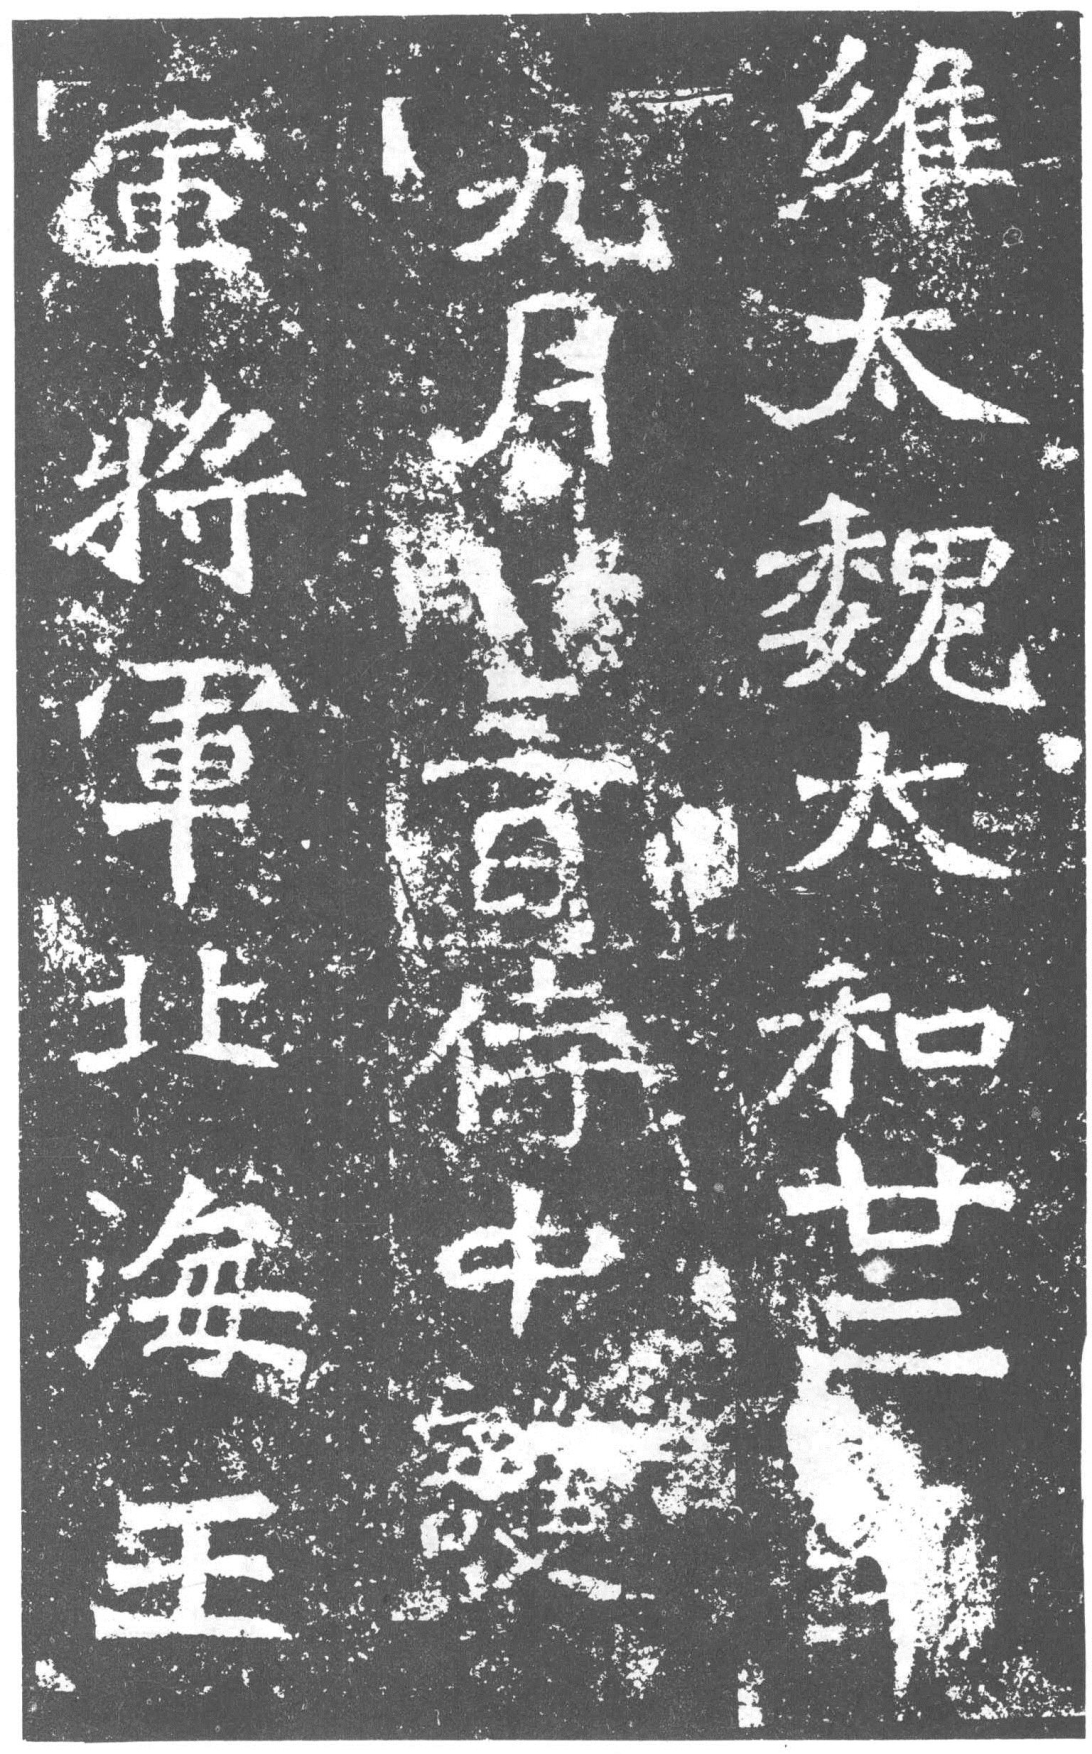 維太魏太和廿二年
九月三日侍中護
軍將軍北海王